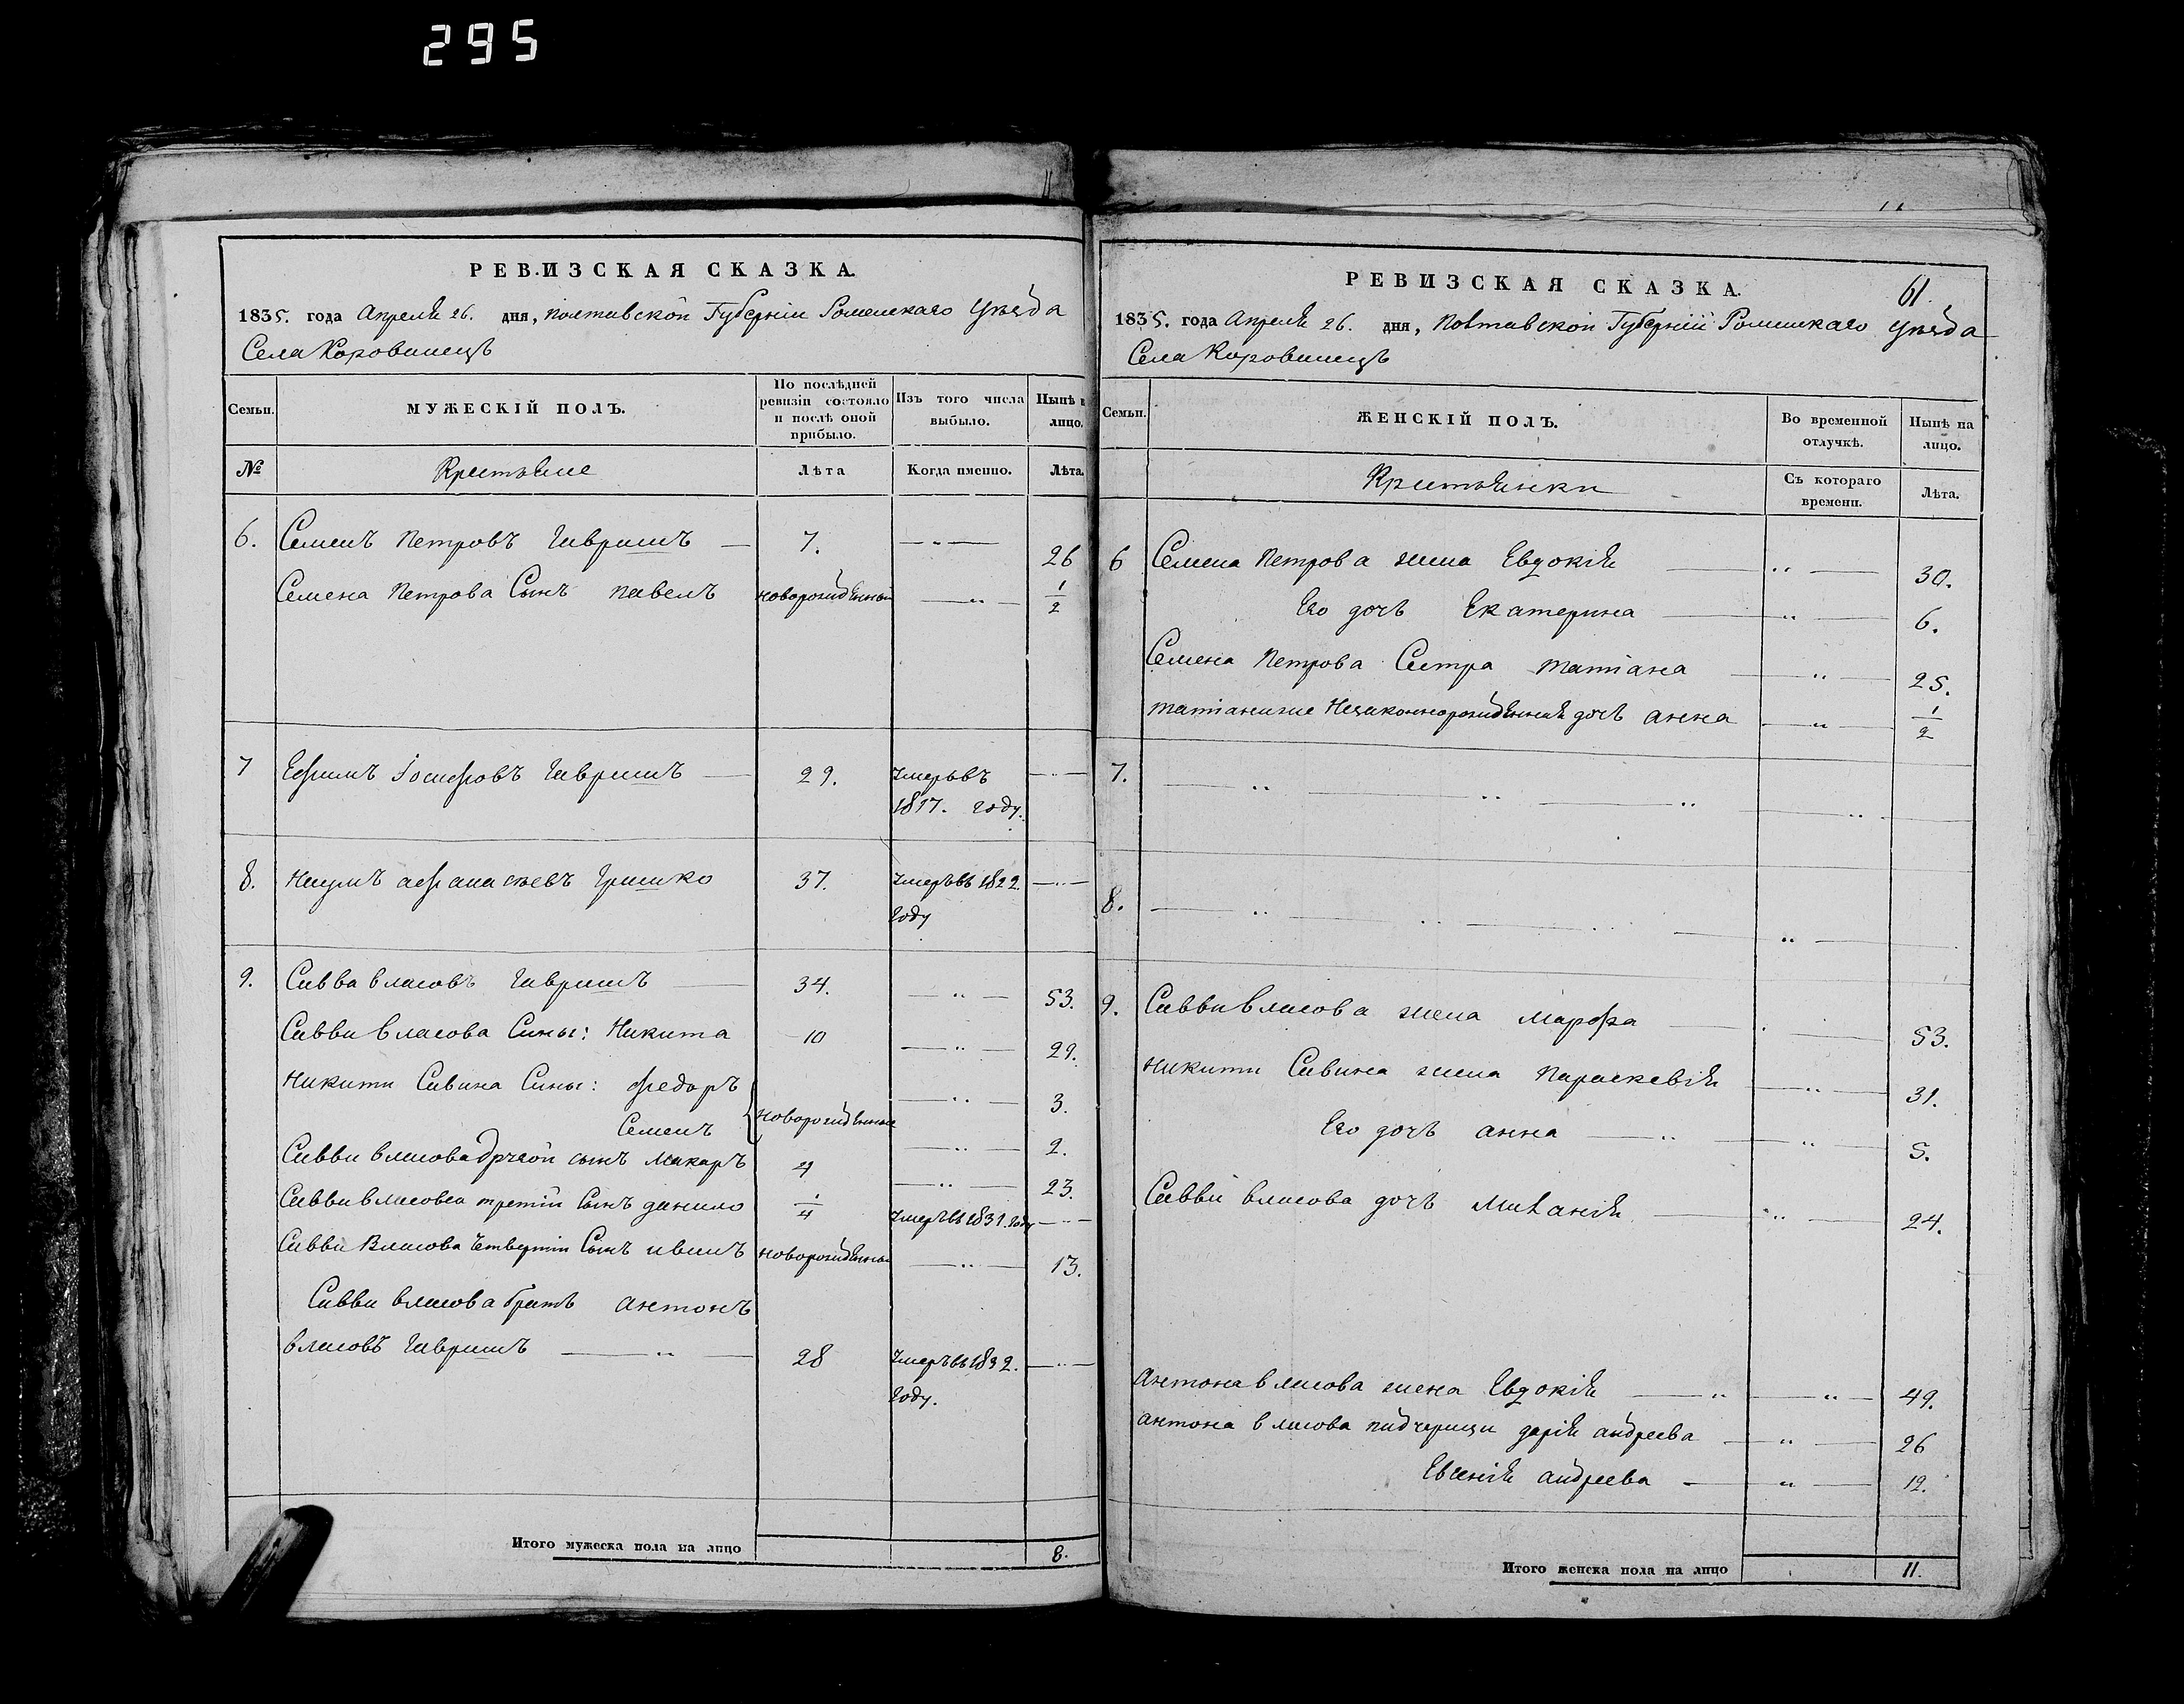 295
РЕВИЗСКАЯ СКАЗКА.
1835. года Апреля 26. дня, Полтавской Губернiи Роменскаго уезда
Села Коровинецъ
Семьи.
МУЖЕСКІЙ ПОЛЪ.
По послѣдней ревизіи состояло и послѣ оной прибыло.
Изъ того числа выбыло.
Нынѣ н лицо.
№
Крестьяне
Лѣта
Когда именно.
Лѣта.
6. Семенъ Петровъ Гавришъ 7. 26
Семена Петрова Сынъ павелъ новорожденный 1/2
7 Ефимъ Іосифовъ Гавришъ 29. Умеръ въ
1817. году.
8. Наумъ афанасьевъ Гришко 37. Умеръ въ 1822.
году
9. Савва власовъ Гавришъ 34. 53.
Савви власова Сины: Никита 10 29.
Никити Савина Сины: федоръ 3.
Семенъ новорожденные 2.
Савви власова другой сынъ Макаръ 4 23.
Савви власова третiй Сынъ данило 1/4 Умеръ въ 1831. году
Савви Власова Четвертiй Сынъ иванъ новорожденный 13.
Савви власова братъ антонъ
власовъ Гавришъ 28 Умеръ въ 1832.
году.
Итого мужеска пола на лицо 8.
РЕВИЗСКАЯ СКАЗКА.
61.
1835. года Апреля 26. дня, Полтавской Губернiй Роменскаго уезда
Села Коровинецъ
Семьи.
ЖЕНСКІЙ ПОЛЪ.
Во временной отлучкѣ.
Нынѣ на лицо.
Крестьянки
Съ котораго времени.
Лѣта.
6 Семена Петрова жена Евдокiя 30.
Его дочь Екатерина 6.
Семена Петрова Сестра татiана 25.
татiани Незаконнорожденная дочь анна 1/2
7.
8.
9. Савви власова жена марфа 53.
Никити Савина жена Параскевiя 31.
Его дочь анна 5.
Савви власова дочь Миланiя 24.
Антона власова жена Евдокiя 49.
антона власова падчерици дарiя андреева 26
Евгенiя андреева 12.
Итого женска пола на лицо 11.